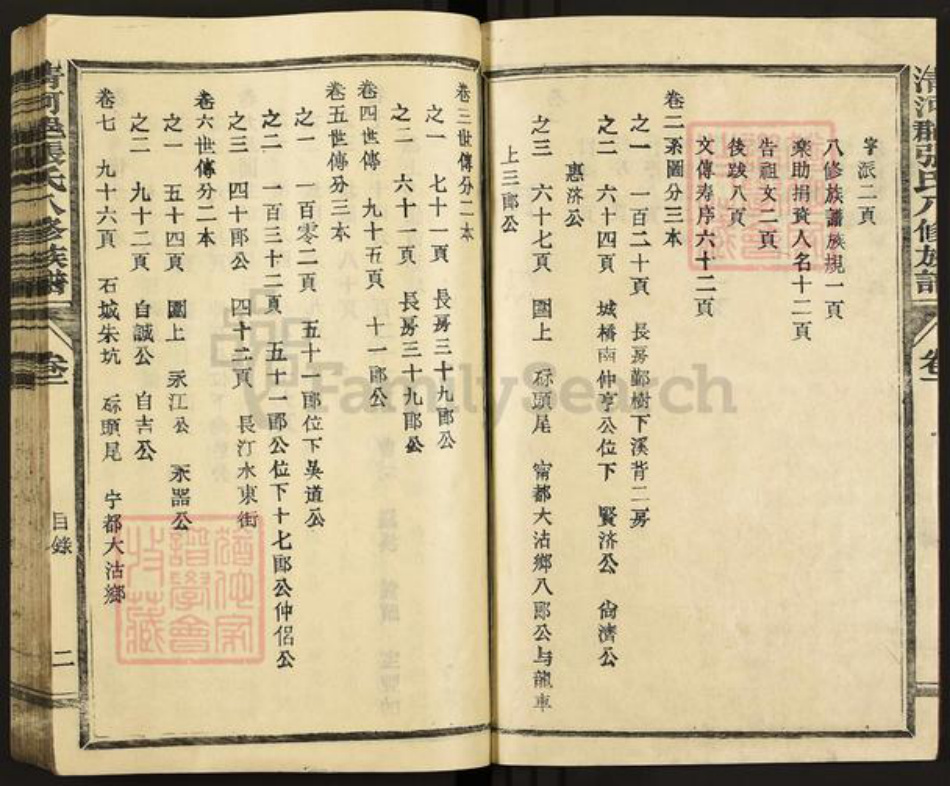 清河郡張氏八修族譜
卷一
字派二頁
八修族譜族規一頁
樂助捐資人名十二頁
告祖文二頁
後跋八頁
文傳寿序六十二頁
卷二系圖分三本
之一 一百二十頁 長房鄞樹下溪背二房
之二 六十四頁 城橋南仲亨公位下 賢济公 尙濟公
惠济公
之三 六十七頁 圍上 磜頭尾 甯都大沽鄉八郞公与龍車
上三郞公
卷三世傳分二本
之一 七十一頁 長房三十九郞公
之二 六十一頁 長房三十九郞公
卷四世傳 九十五頁 十一郞公
卷五世傳分三本
之一 一百零二頁 五十一郞位下吳道公
之二 一百三十二頁 五十一郞公位下十七郞公仲侣公
之三 四十郞公 四十二頁 長汀水東街
卷六世傳分二本
之一 五十四頁 圍上 永江公 永器公
之二 九十二頁 自誠公 自吉公
卷七 九十六頁 石城朱坑 磜頭尾 宁都大沽鄉
清河郡張氏八修族譜
卷一
目錄
二
FamilySearch